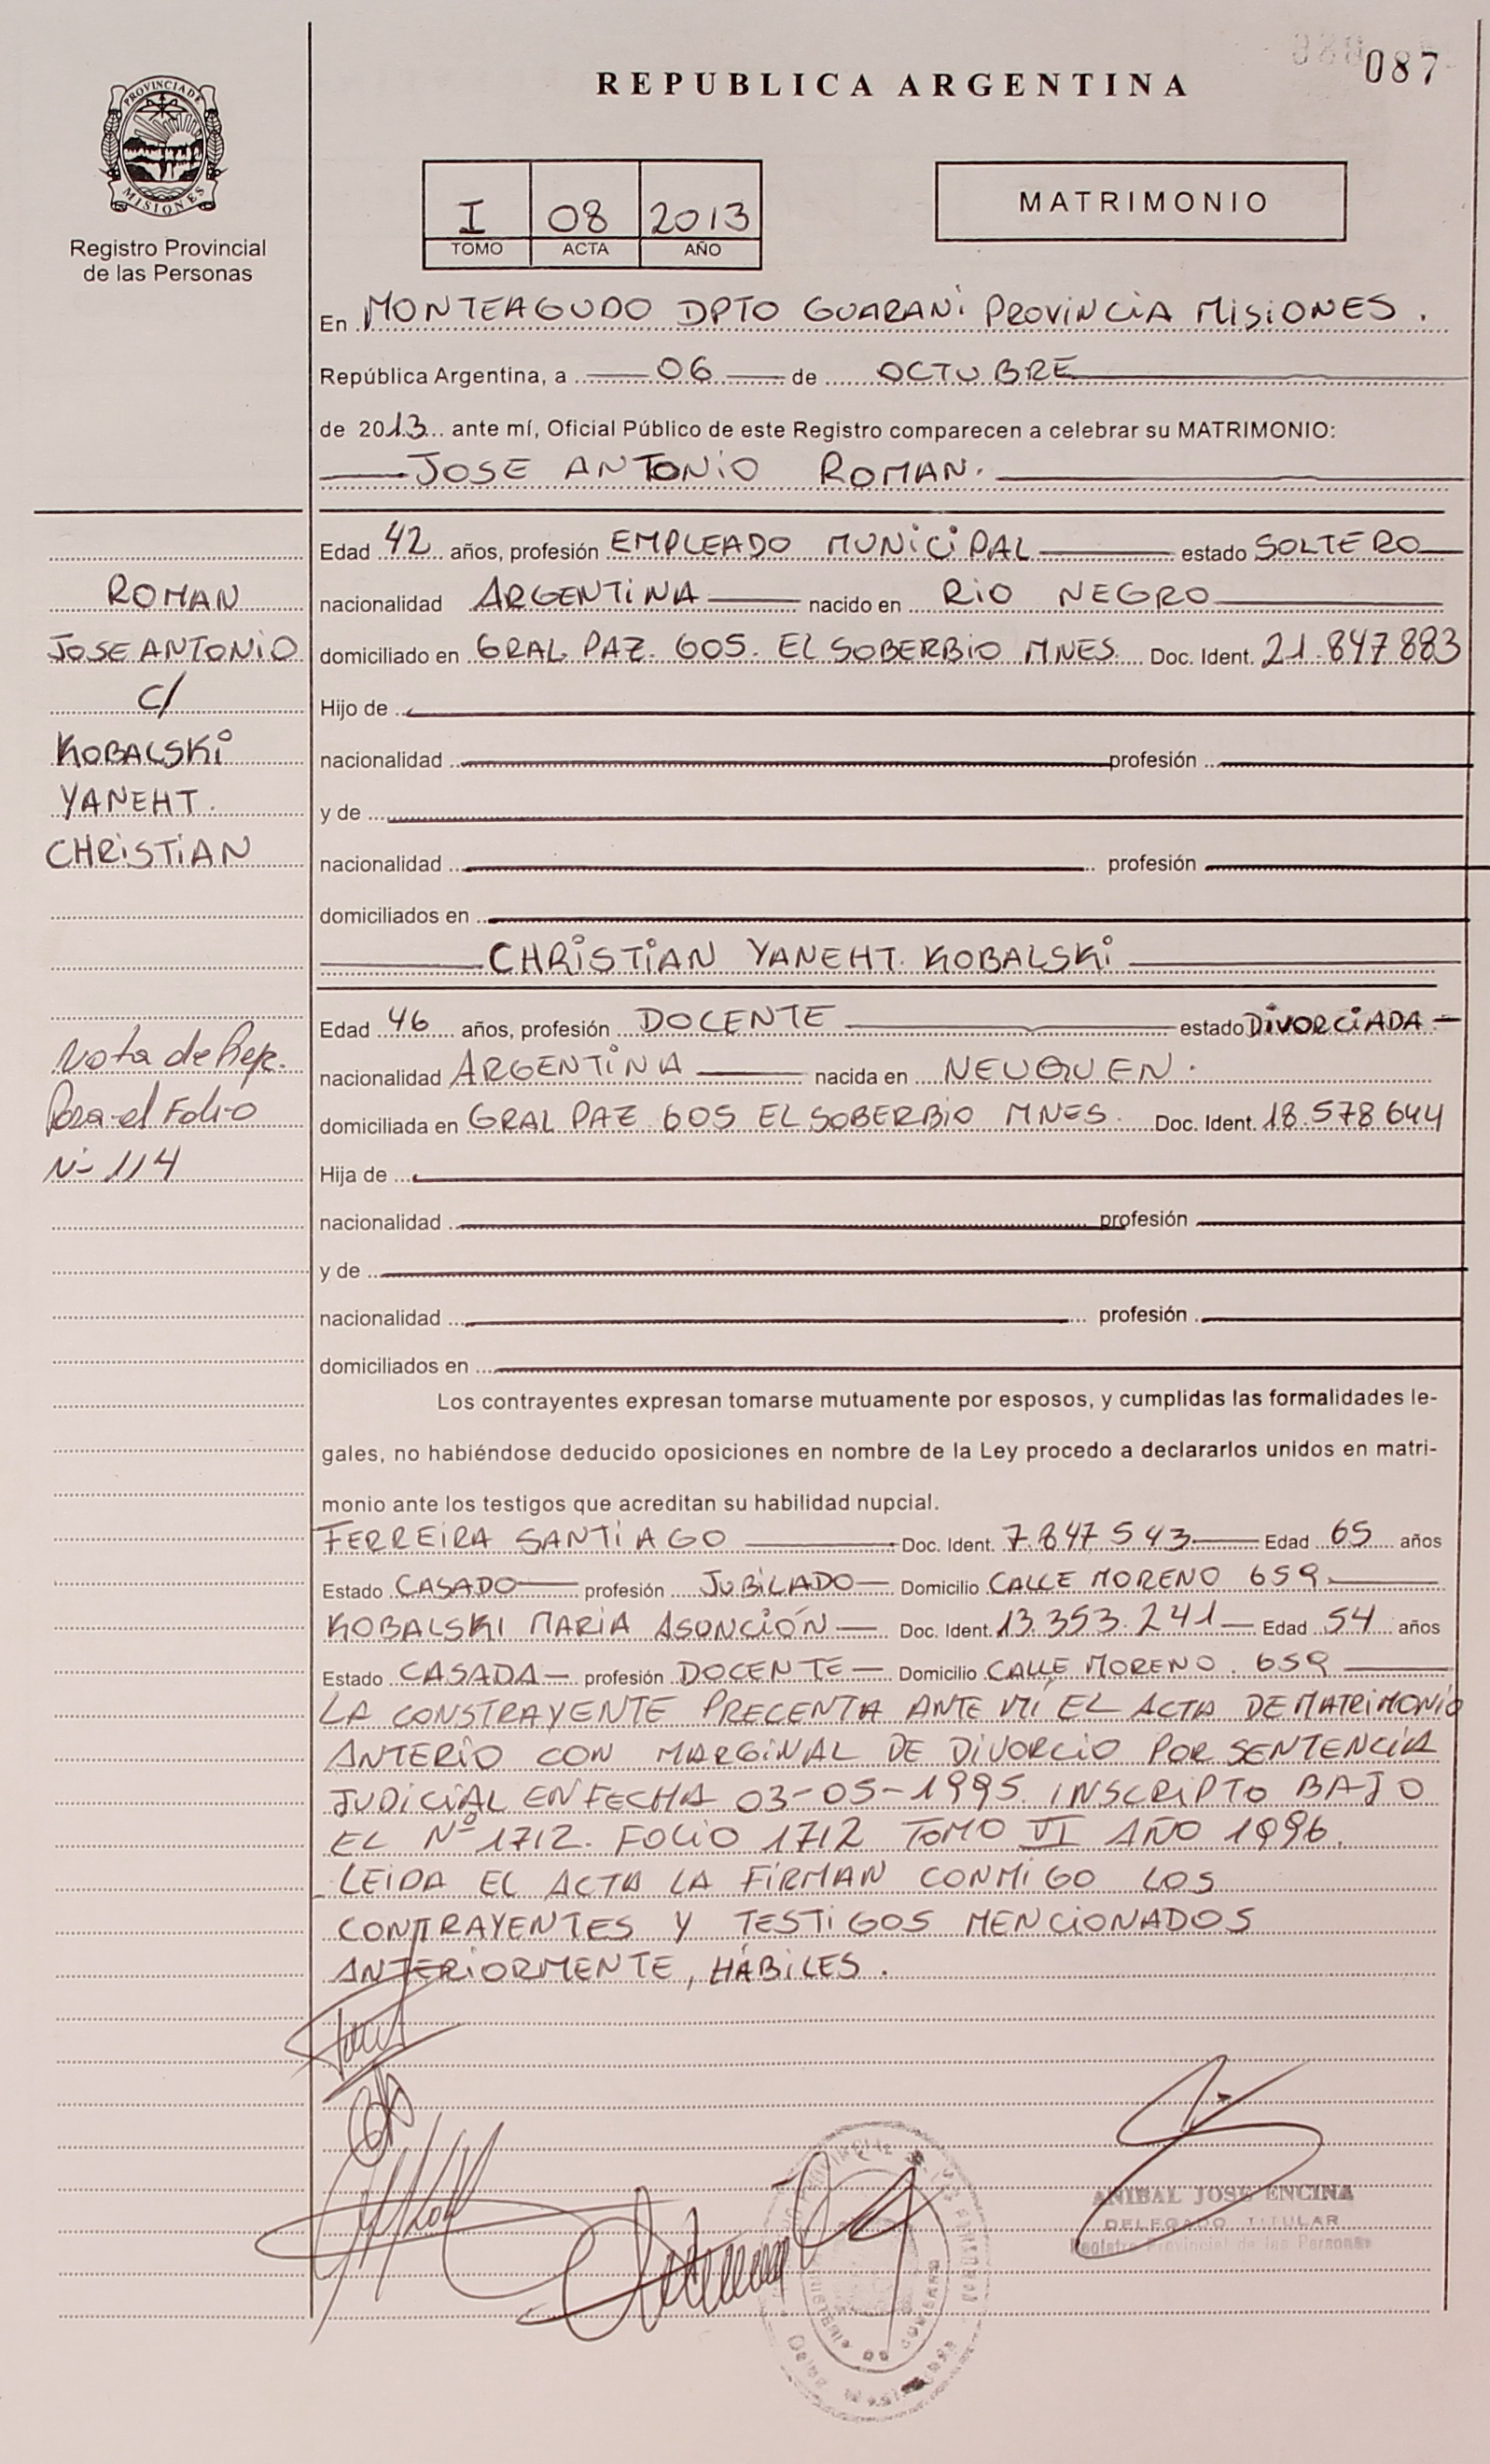 087
REPUBLICA ARGENTINA
PROVINCIA DE
MISIONES
Registro Provincial
de las Personas
I 08 2013
TOMO ACTA AÑO
MATRIMONIO
En MONTEAGUDO DPTO GUARANi PROVINCIA MISIONES.
República Argentina, a 06 de OCTUBRE
de 2013 ante mí, Oficial Público de este Registro comparecen a celebrar su MATRIMONIO:
JOSE ANTONIO ROMAN.
Edad 42 años, profesión EMPLEADO MUNICIPAL estado SOLTERO
nacionalidad ARGENTINA nacido en RIO NEGRO
domiciliado en GRAL PAZ. 605. EL SOBERBIO MNES. Doc. Ident. 21.847883
Hijo de
nacionalidad profesión
y de
nacionalidad profesión
domiciliados en
CHRISTIAN YANEHT. KOBALSKI
Edad 46 años, profesión DOCENTE estado DIVORCIADA
nacionalidad ARGENTINA nacida en NEUQUEN.
domiciliada en GRAL PAZ 605 EL SOBERBIO MNES. Doc. Ident. 18.578644
Hija de
nacionalidad profesión
y de
nacionalidad profesión
domiciliados en
ROMAN
JOSE ANTONIO
C/
KOBALSKI
YANEHT.
CHRISTIAN
Nota de Ref.
Pasa el Folio
Nº 114
Los contrayentes expresan tomarse mutuamente por esposos, y cumplidas las formalidades le-
gales, no habiéndose deducido oposiciones en nombre de la Ley procedo a declararlos unidos en matri-
monio ante los testigos que acreditan su habilidad nupcial.
FERREIRA SANTIAGO Doc. Ident. 7.847543 Edad 65 años
Estado CASADO profesión JUBILADO Domicilio CALLE MORENO 659
KOBALSKI MARIA ASUNCIÓN Doc. Ident. 13.353.241 Edad 54 años
Estado CASADA profesión DOCENTE Domicilio CALLE MORENO. 659
LA CONSTRAYENTE PRECENTA ANTE MÍ EL ACTA DE MATRIMONIO
ANTERIO CON MARGINAL DE DIVORCIO POR SENTENCIA
JUDICIAL EN FECHA 03-05-1995. INSCRIPTO BAJO
EL Nº 1712. FOLIO 1712 TOMO VI AÑO 1996.
LEIDA EL ACTA LA FIRMAN CONMIGO LOS
CONTRAYENTES Y TESTIGOS MENCIONADOS
ANTERIORMENTE, HÁBILES.
ANIBAL JOSE ENCINA
DELEGADO TITULAR
Registro Provincial de las Personas